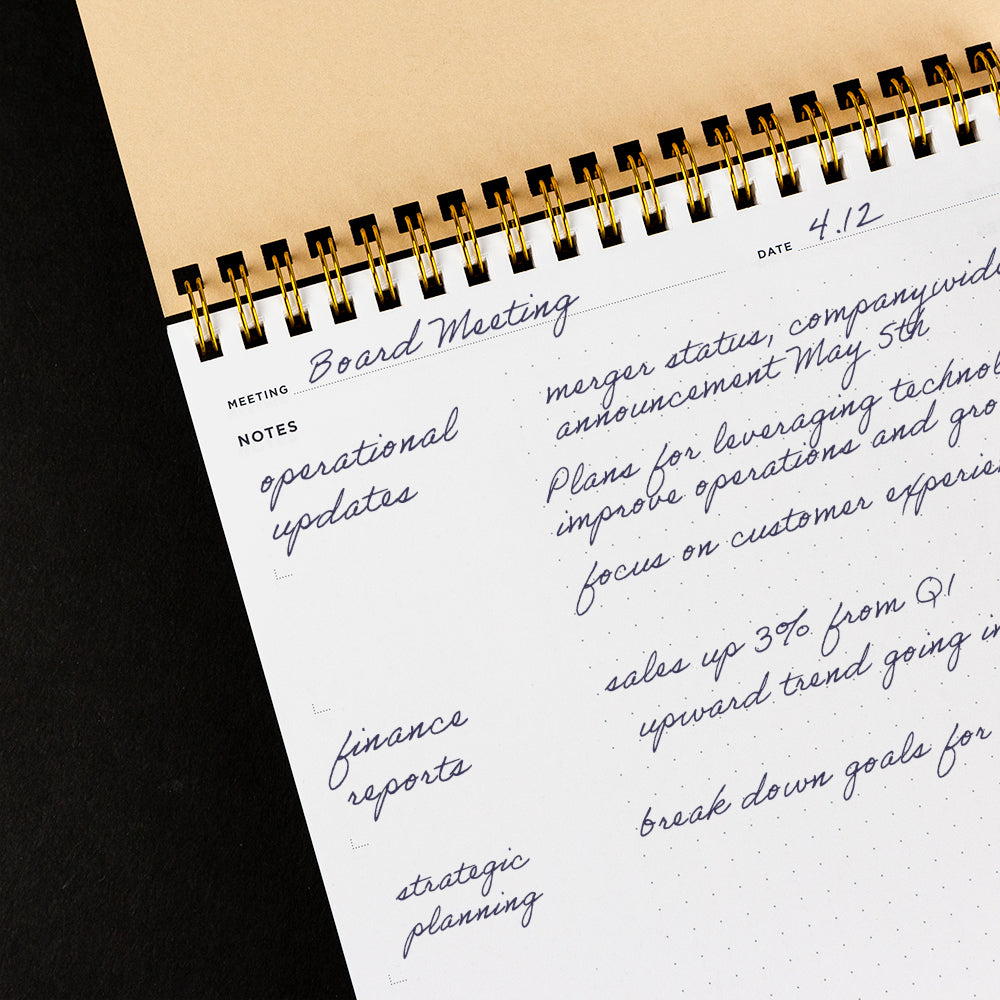 MEETING Board Meeting
DATE 4.12
NOTES
operational
updates
merger status,
announcement May 5th
Plans for leveraging
improve operations and
focus on customer
finance
reports
sales up 3% from Q1
upward trend going
strategic
planning
break down goals for